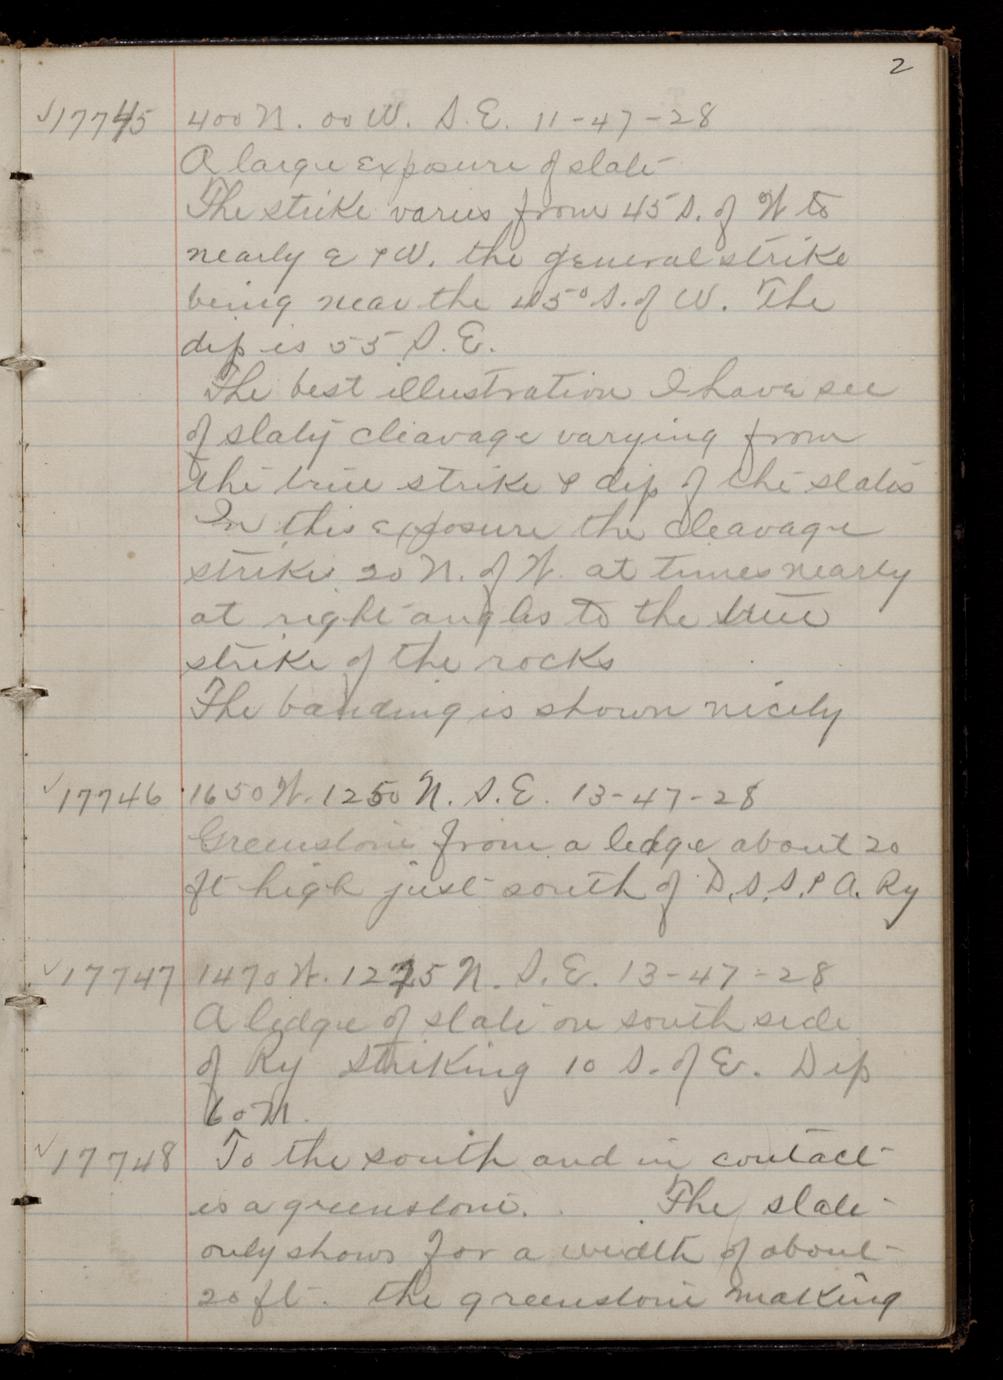 2
✓17745 400 N. 00 W. S.E. 11-47-28
A large exposure of slate
The strike varies from 45 S. of W to
nearly E & W. the general strike
being near the 45° S. of W. The
dip is 55 S.E.
The best illustration I have see
of slaty cleavage varying from
the true strike & dip of the slates
In this exposure the cleavage
strikes 20 N. of W. at times nearly
at right angles to the true
strike of the rocks
The banding is shown nicely
✓17746 1650 W. 1250 N. S.E. 13-47-28
Greenstone from a ledge about 20
ft high just south of D.S.S.& A. Ry
✓17747 1470 W. 1225 N. S.E. 13-47-28
A ledge of slate on south side
of Ry striking 10 S. of E. Dip
60 N.
✓17748 To the south and in contact
is a greenstone. The slate
only shows for a width of about
20 ft. the greenstone making